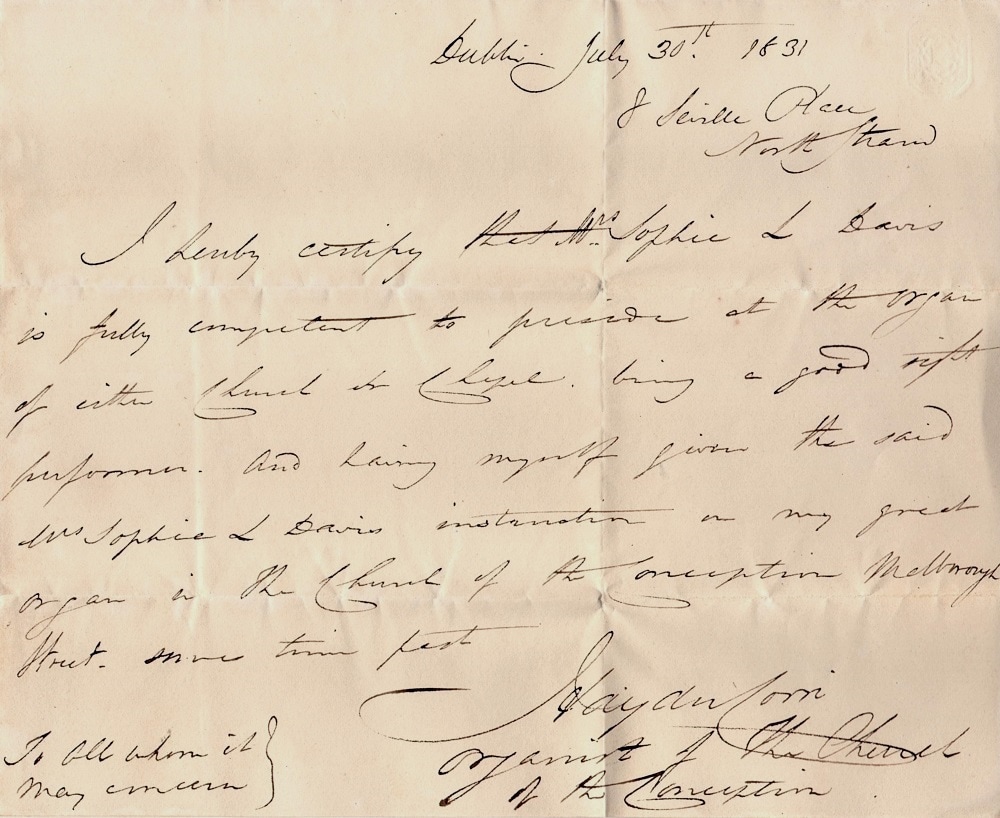 Dublin July 30th 1831
8 Seville Place
North Strand
I hereby certify that Mrs Sophie L Davis
is fully competent to preside at the organ
of either Church or Chapel. being a good sight
performer. And having myself given the said
Mrs Sophie L Davis instruction on my great
organ in the Church of the Conception Malborough
Street. some time past
Haydn Corri
organist of the Church
of the Conception
To all whom it
may concern